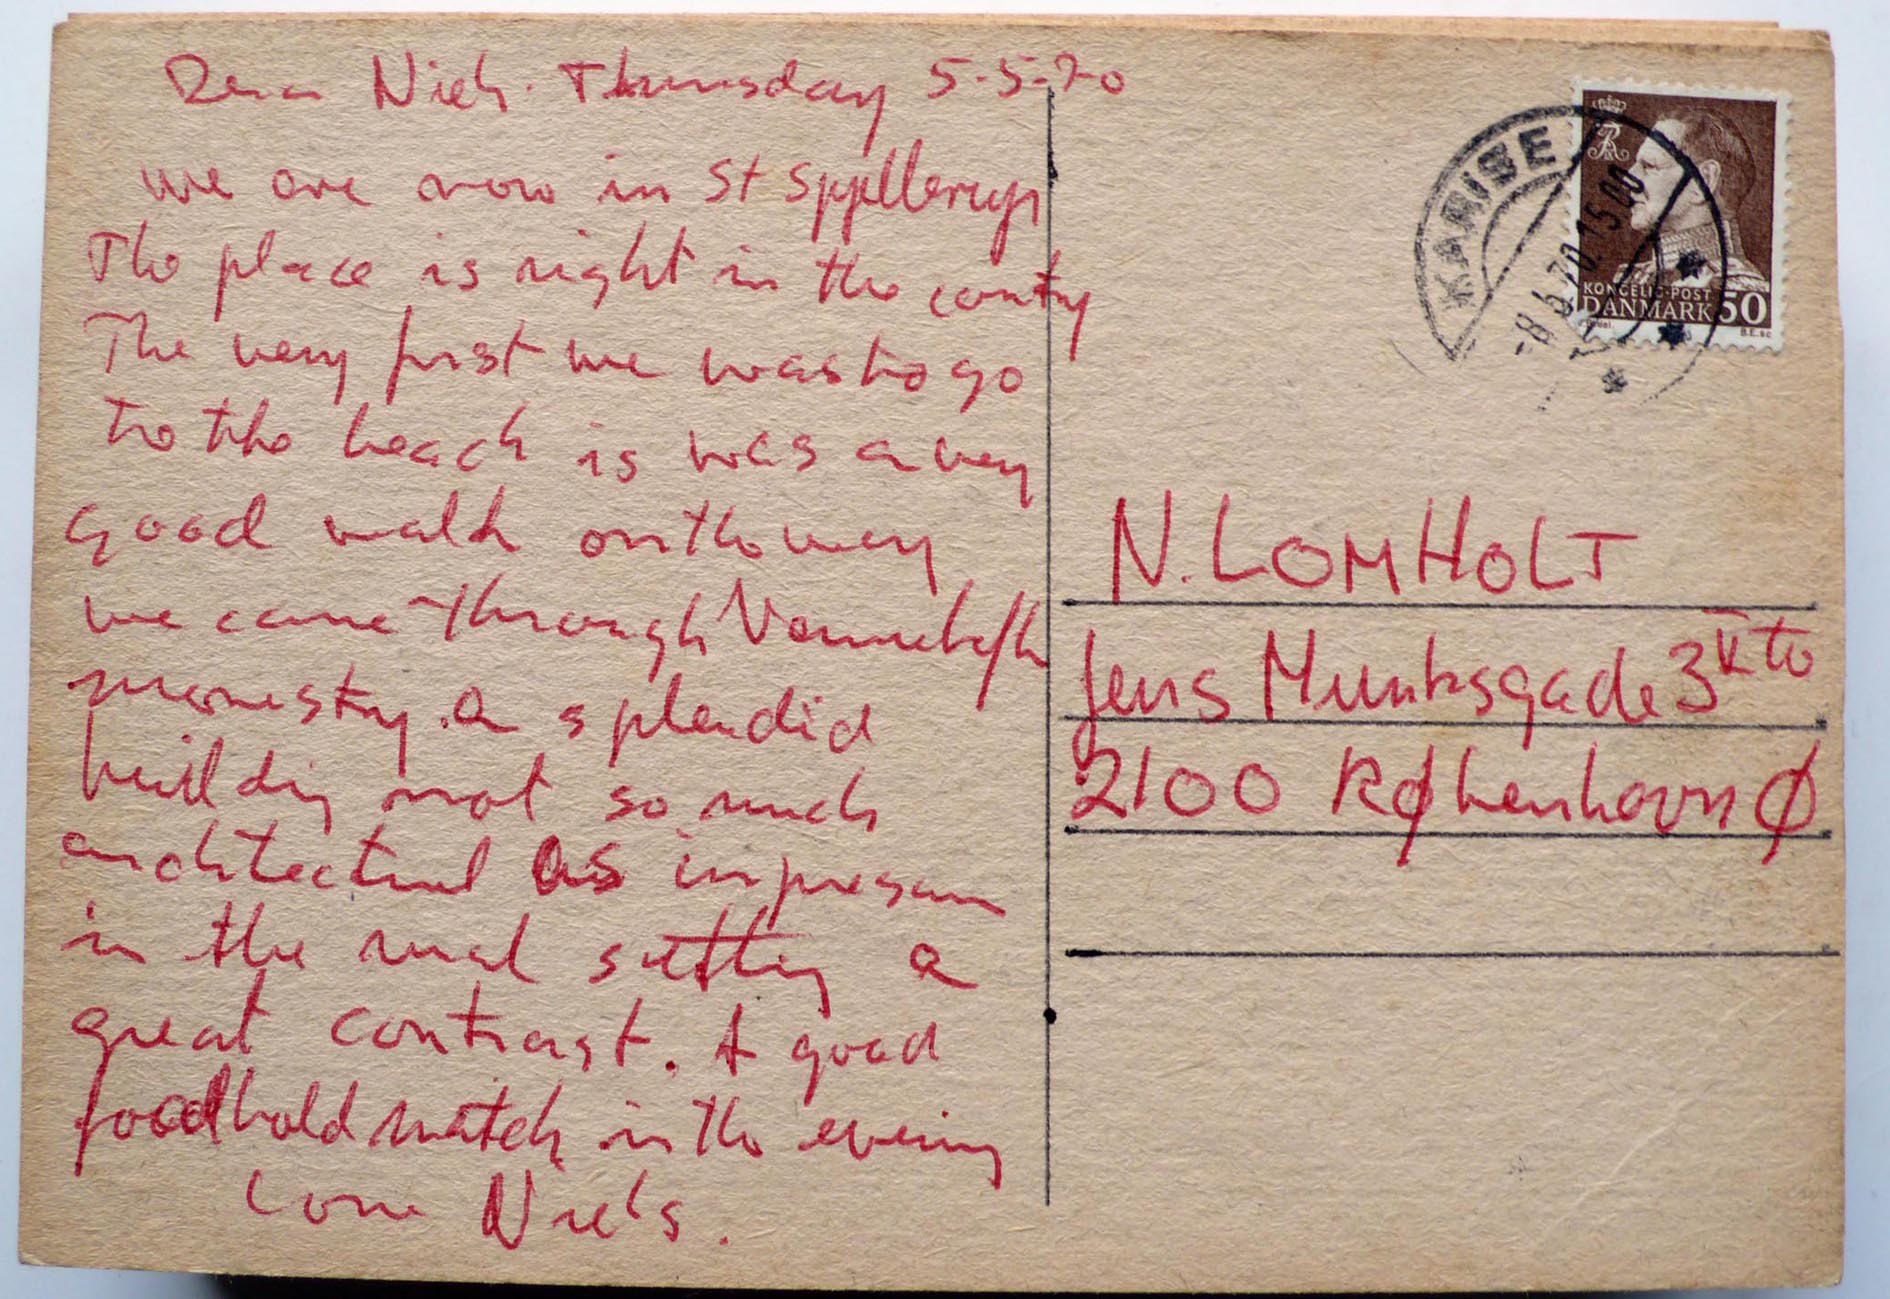 Dear Niels. Thursday 5-5-70
we are now in St
The place is right in the contry
The very first we was to go
to the beach is was a very
good walk on the way
we came through
monestry. a splendid
building not so much
architectural as
in the rural setting a
great contrast. A good
foodbold match in the evening
Love Niels.
KARISE
-8.6.70.15 00
KONGELIG POST
DANMARK 50
N. LOMHOLT
Jens Munksgade 3 to
2100 København Ø